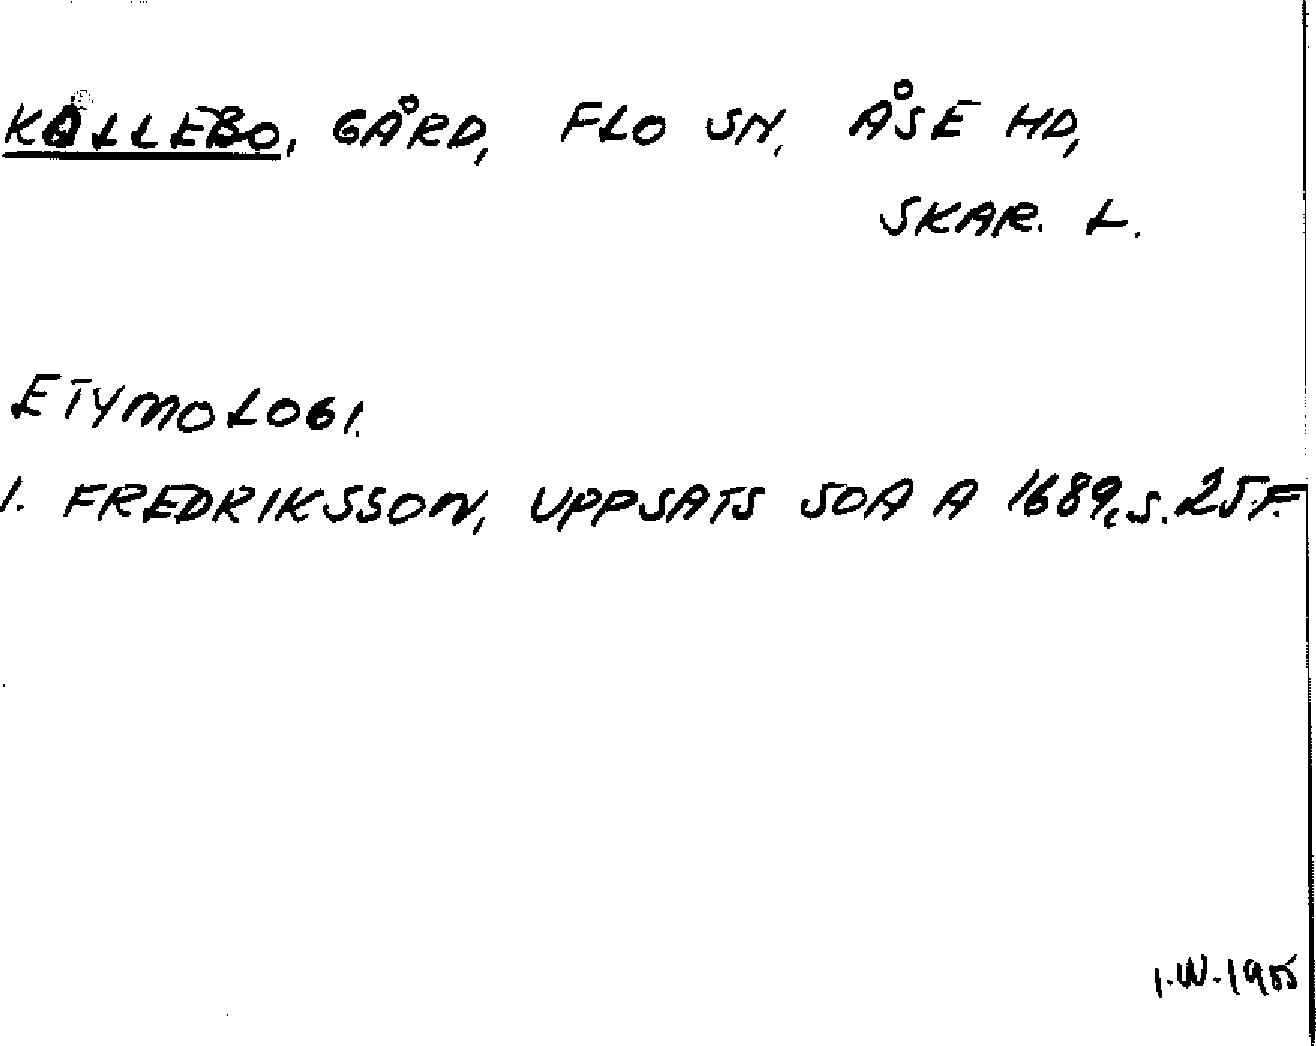 KOLLEBO, GÅRD, FLO SN, ÅSE HD,
SKAR. L.
ETYMOLOGI.
1. FREDRIKSSON, UPPSATS SOA A 1689, S. 25F.
I.W-1955